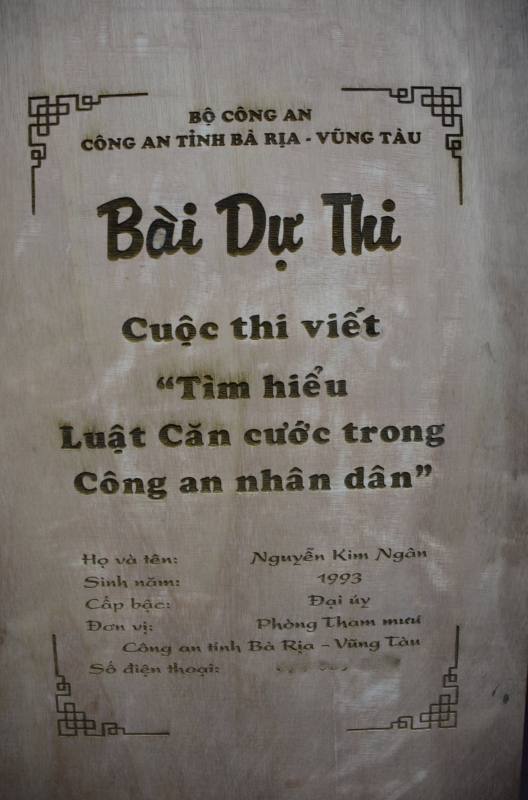 BỘ CÔNG AN
CÔNG AN TỈNH BÀ RỊA - VŨNG TÀU
Bài Dự Thi
Cuộc thi viết
“Tìm hiểu
Luật Căn cước trong
Công an nhân dân”
Họ và tên: Nguyễn Kim Ngân
Sinh năm: 1993
Cấp bậc: Đại úy
Đơn vị: Phòng Tham mưu
Công an tỉnh Bà Rịa - Vũng Tàu
Số điện thoại: